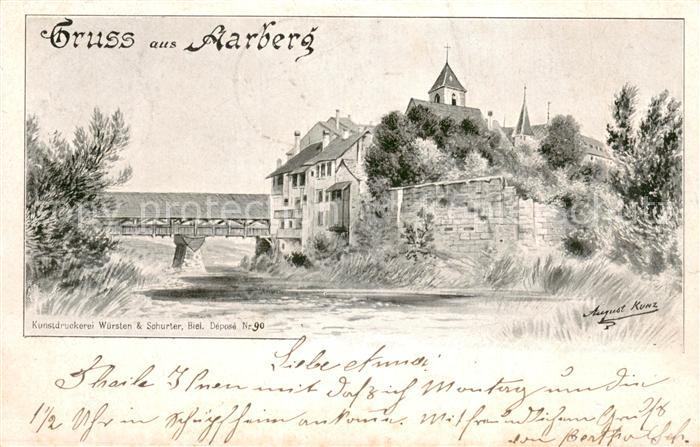 Gruss aus Aarberg
August Kunz
Kunstdruckerei Würsten & Schurter, Biel. Déposé Nr. 90
Liebe
Theile Ihnen mit daß ich Montag um die
1/2 Uhr in Schüpfheim ankomme. Mit freundlichem Gruß
von Bertha